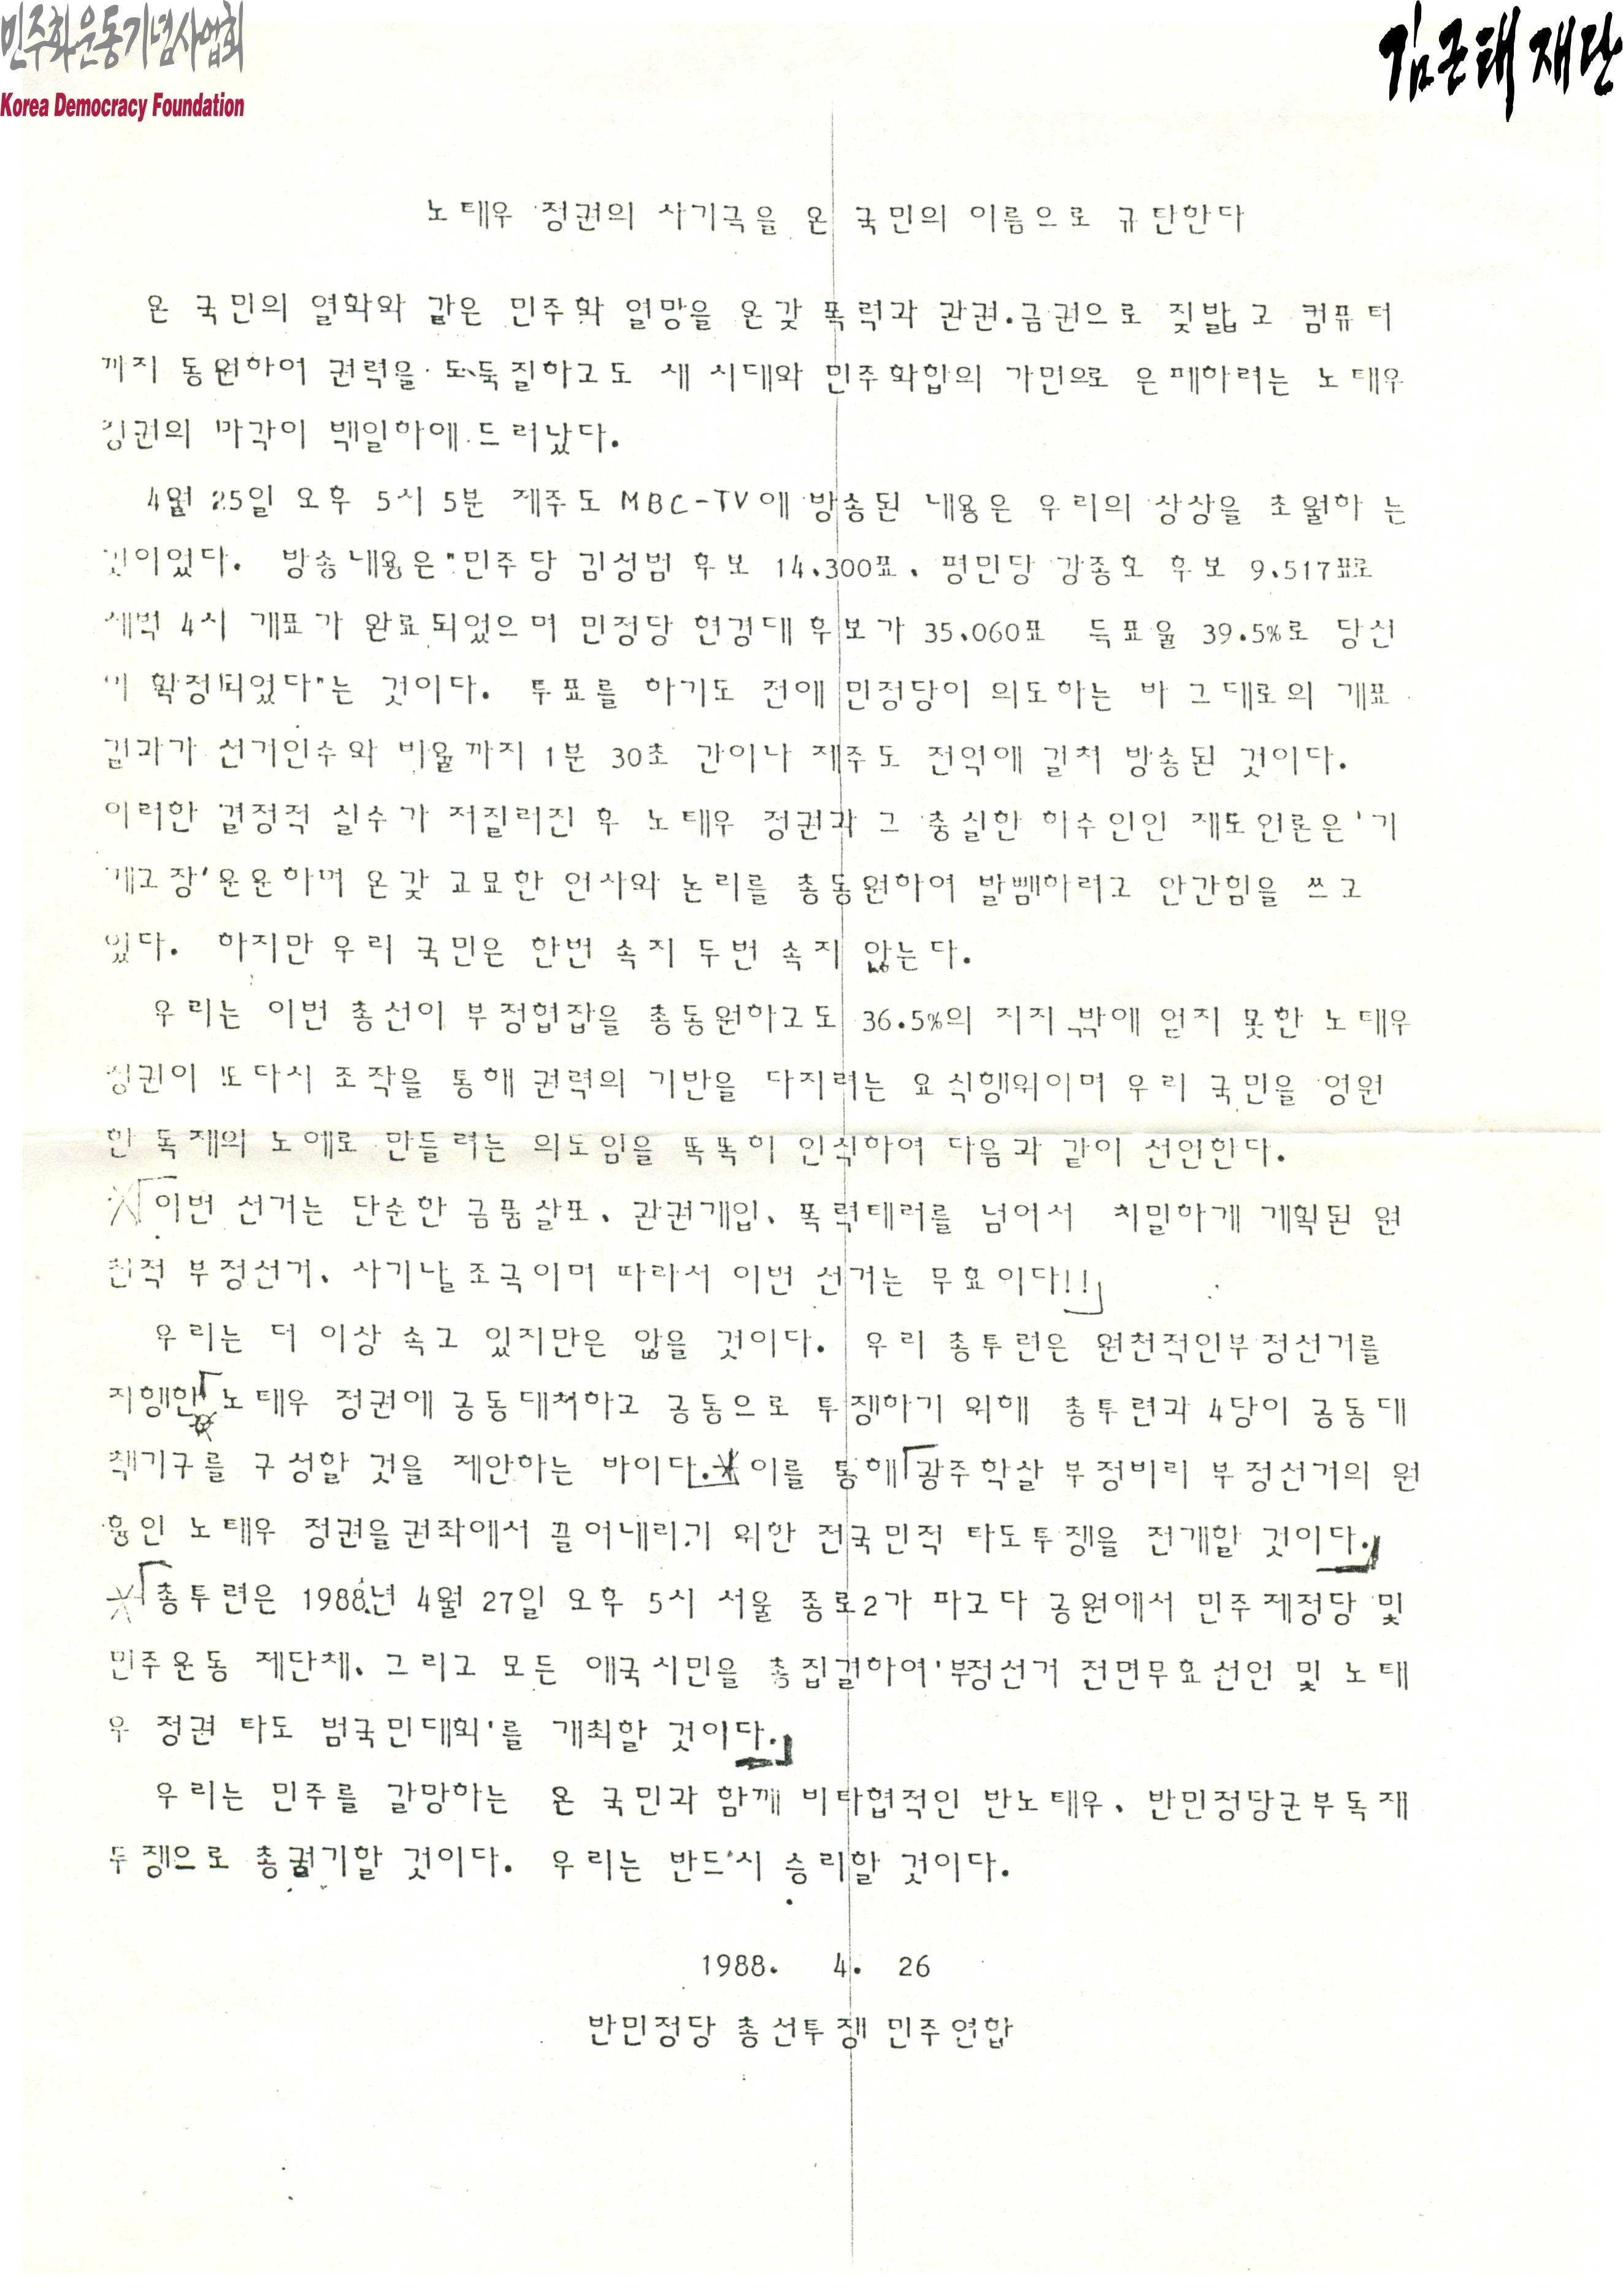 민주화운동기념사업회
Korea Democracy Foundation
김근태재단
노태우 정권의 사기극을 온 국민의 이름으로 규탄한다
온 국민의 열화와 같은 민주화 열망을 온갖 폭력과 관권.금권으로 짖밟고 컴퓨터
까지 동원하여 권력을 도둑질하고도 새 시대와 민주화합의 가면으로 은폐하려는 노태우
정권의 마각이 백일하에 드러났다.
4월 25일 오후 5시 5분 제주도 MBC-TV에 방송된 내용은 우리의 상상을 초월하 는
것이었다. 방송내용은"민주당 김성범 후보 14.300표, 평민당 강종호 후보 9.517표로
새벽 4시 개표가 완료되었으며 민정당 현경대 후보가 35.060표 득표율 39.5%로 당선
이 확정되었다"는 것이다. 투표를 하기도 전에 민정당이 의도하는 바 그대로의 개표
결과가 선거인수와 비율까지 1분 30초 간이나 제주도 전역에 걸쳐 방송된 것이다.
이러한 결정적 실수가 저질러진 후 노태우 정권과 그 충실한 하수인인 제도언론은'기
계고장'운운하며 온갖 교묘한 언사와 논리를 총동원하여 발뺌하려고 안간힘을 쓰고
있다. 하지만 우리 국민은 한번 속지 두번 속지 않는다.
우리는 이번 총선이 부정협잡을 총동원하고도 36.5%의 지지 밖에 얻지 못한 노태우
정권이 또다시 조작을 통해 권력의 기반을 다지려는 요식행위이며 우리 국민을 영원
한 독재의 노예로 만들려는 의도임을 똑똑히 인식하여 다음과 같이 선언한다.
※「이번 선거는 단순한 금품살포, 관권개입, 폭력테러를 넘어서 치밀하게 계획된 원
천적 부정선거, 사기날조극이며 따라서 이번 선거는 무효이다!!」
우리는 더 이상 속고 있지만은 않을 것이다. 우리 총투련은 원천적인부정선거를
자행한「노태우 정권에 공동대처하고 공동으로 투쟁하기 위해 총투련과 4당이 공동대
책기구를 구성할 것을 제안하는 바이다.」※이를 통해「광주학살 부정비리 부정선거의 원
흉인 노태우 정권을권좌에서 끌어내리기 위한 전국민적 타도투쟁을 전개할 것이다.」
※「총투련은 1988년 4월 27일 오후 5시 서울 종로2가 파고다 공원에서 민주제정당 및
민주운동 제단체, 그리고 모든 애국시민을 총집결하여'부정선거 전면무효선언 및 노태
우 정권 타도 범국민대회'를 개최할 것이다.」
우리는 민주를 갈망하는 온 국민과 함께 비타협적인 반노태우, 반민정당군부독재
투쟁으로 총궐기할 것이다. 우리는 반드시 승리할 것이다.
1988. 4. 26
반민정당 총선투쟁 민주연합